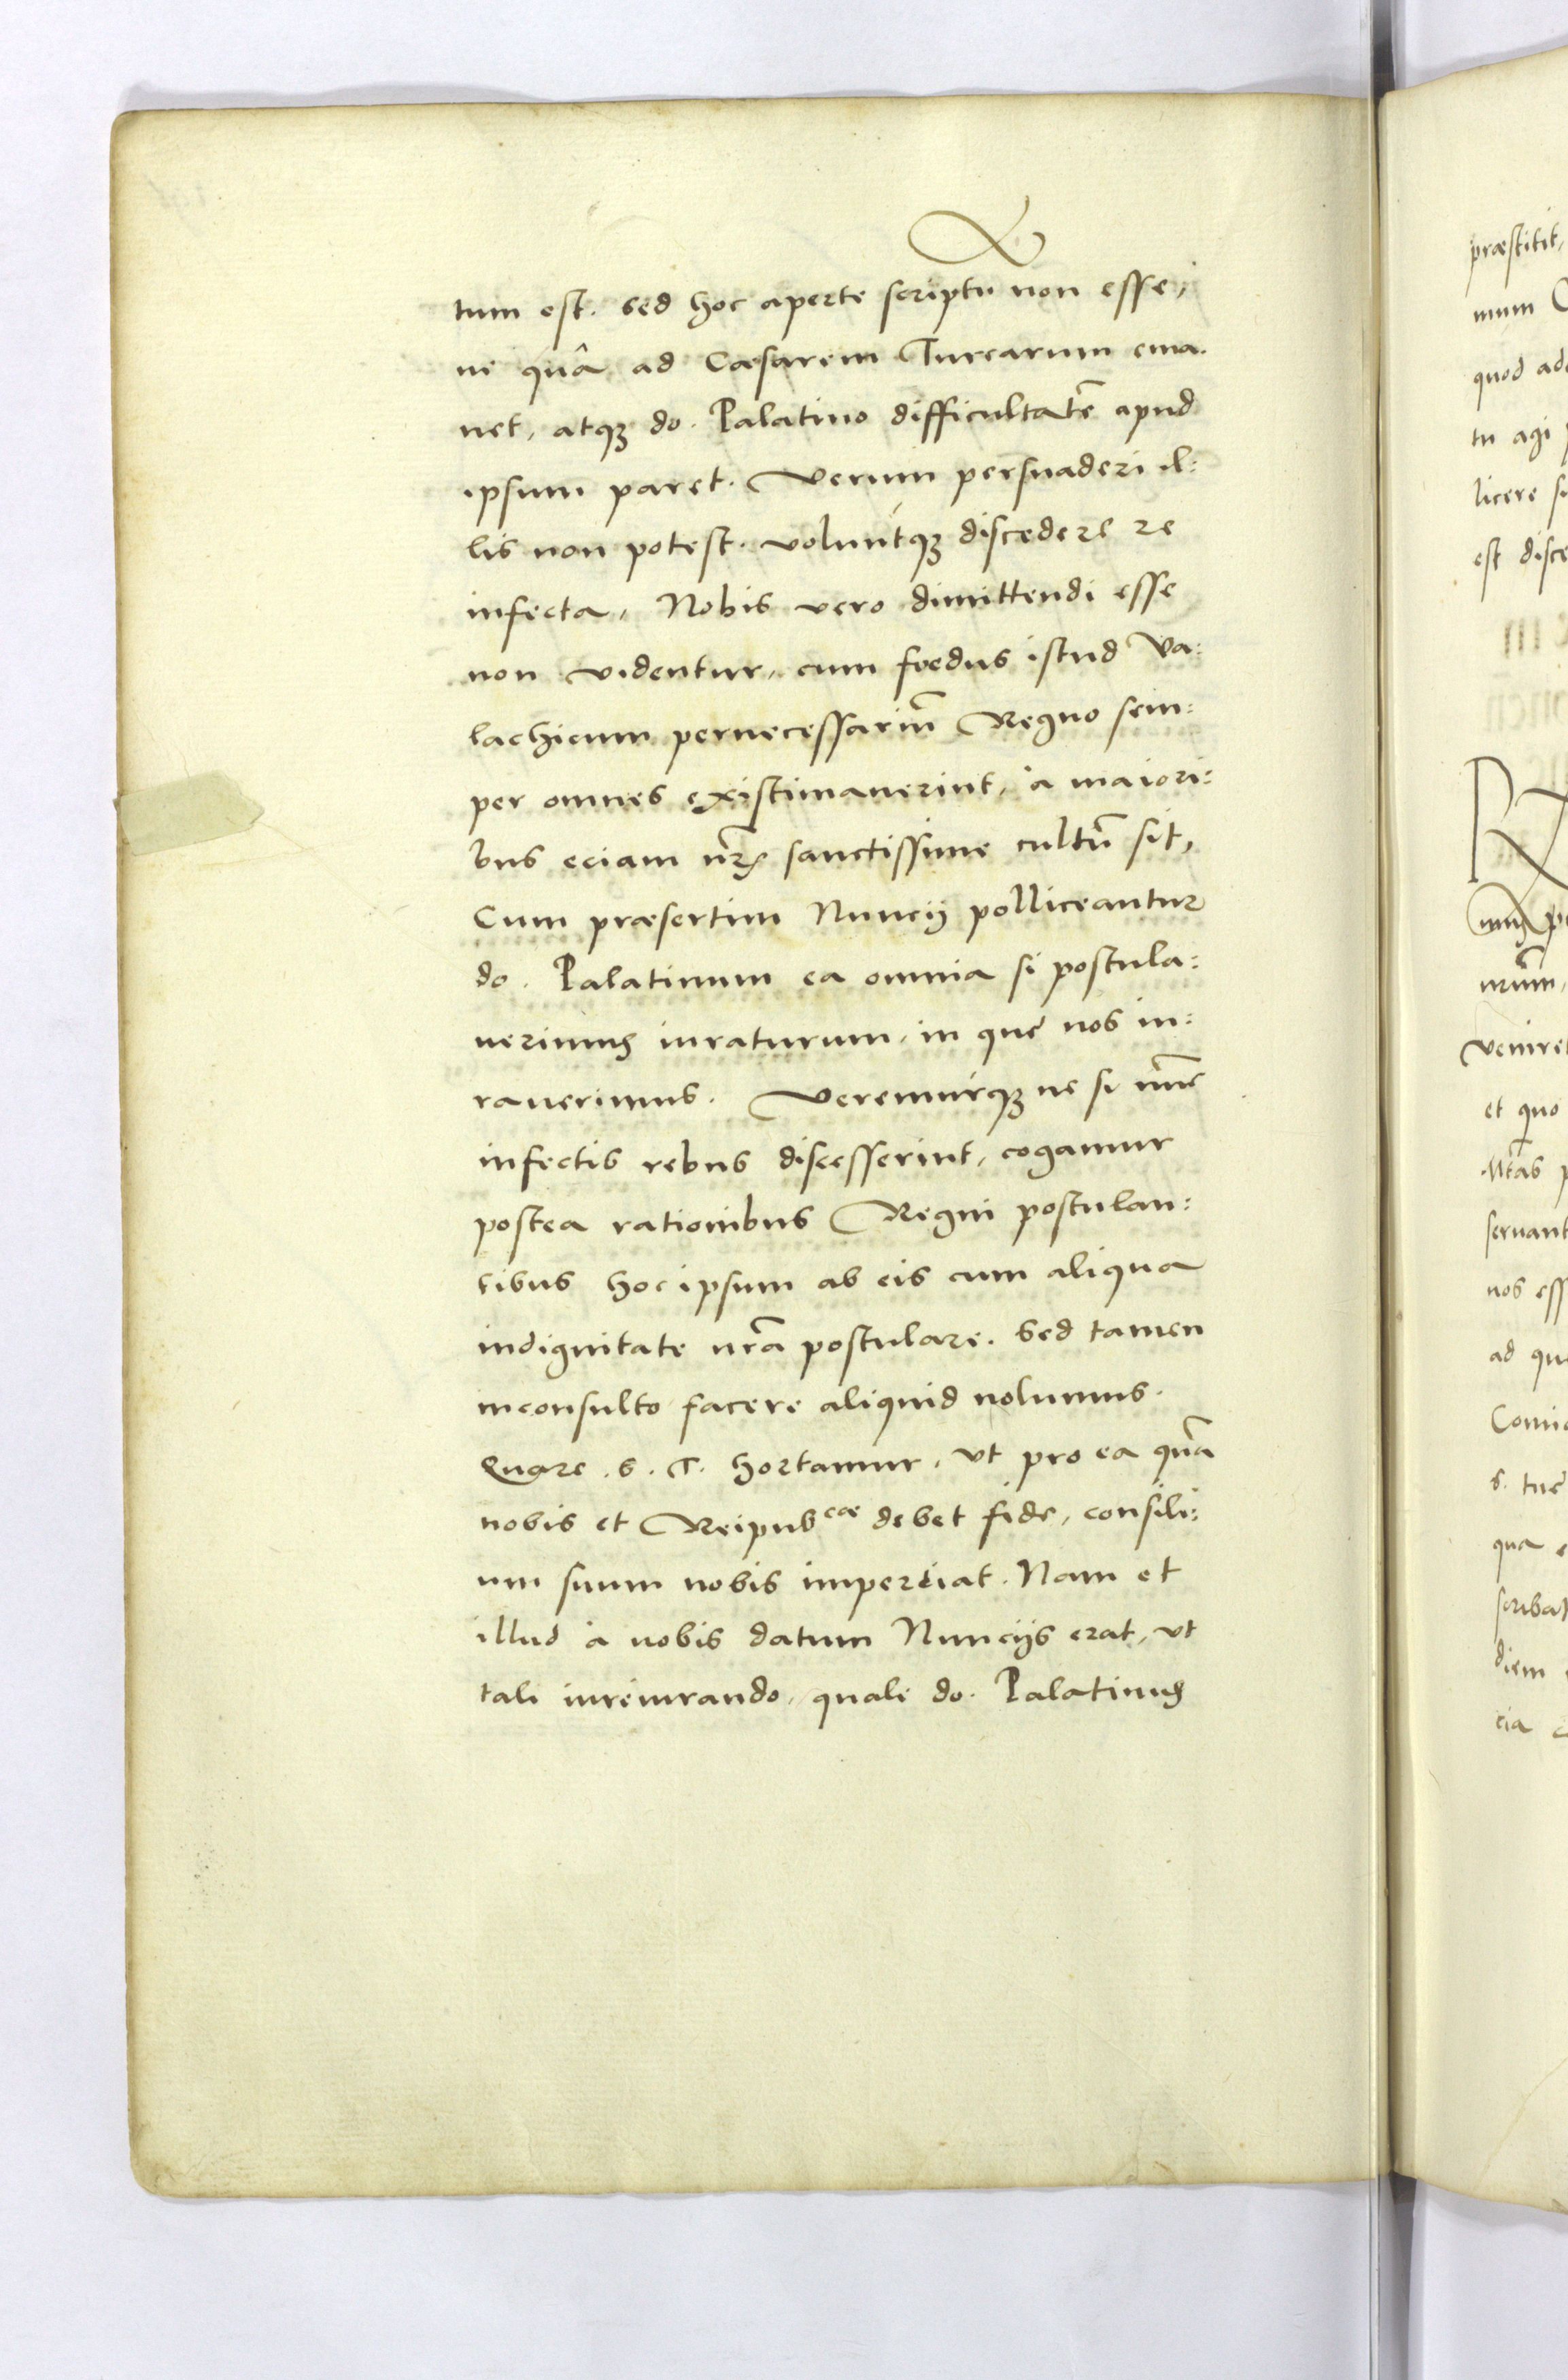 tum est. sed hoc aperte scriptū non esse,
ne quâ ad Cæsarem Turcarum ema.
net, atqꝫ do. Palatino difficultatē apud
ipsum paret. Verum persuaderi il:
lis non potest. voluntqꝫ discedere re
infecta. Nobis vero dimittendi esse
non videntur, cum foedus istud Va:
lachicum pernecessariū Regno sem:
per omnes existimauerint, à maiori:
bus eciam nr̃is sanctissime cultū sit,
Cum præsertim Nuncij polliceantur
do. Palatinum ea omnia si postula:
uerimus iuraturum, in quę nos iu:
rauerimus. Veremurqꝫ ne si nunc
infectis rebus discesserint, cogamur
postea rationibus Regni postulan:
tibus hoc ipsum ab eis cum aliqua
indignitate nrã postulare. Sed tamen
inconsulto facere aliquid nolumus.
Quare .S. T. hortamur, vt pro ea quã
nobis et Reipubcæ debet fide, consili:
um suum nobis imperciat. Nam et
illud à nobis datum Nuncijs erat, vt
tali iureiurando, quale do. Palatinus
præstitit,
mum
quod
tu agi
licere
est
veniret
et quo
nos
ad
qua
diem